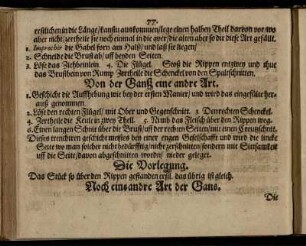 77.
erstlichen in die Länge/kanstu ankommen/lege einen halben Theil davon vor wo
aber nicht/zertheile sie noch einmal in die qver/die alten aber so die diese Art gefällt.
1. Imprimire die Gabel forn am Halß/ und laß sie liegen/
2. Schneide die Brust ab/ auff beyden Seiten.
3. Löse das Ziehbeinlein. 4. Die Flügel. Stoß die Rippen entzwey und thue
das Brustbein von Rump/zertheile die Schenckel von den Spaltschnitten.
Von der Ganß eine andre Art.
1. Geschicht die Auffhebung wie bey der ersten Manier/ und wird das eingefülte her-
auß genommen.
2. Löse den rechten Flügel/ mit Ober und Gegenschnitt. 3. Den rechten Schenckel.
4. Zertheile die Keule in zwey Theil. 5. Nim das Fleisch über den Rippen weg.
6. Einen langen Schnit über die Brust/auff der rechten Seiten/mit einen Creutzschnit.
Dieses tranchiren geschicht meisten bey einer engen Gesellschafft und wird die lincke
Seite wo man solcher nicht bedürfftig/nicht zerschnitten/sondern mit Sittsamkeit
uff die Seite/davon abgeschnitten worden/ nieder geleget.
Die Vorlegung.
Das Stück so über den Rippen gestanden erstl. das übrig ist gleich.
Noch eine andre Art der Gans.
Die